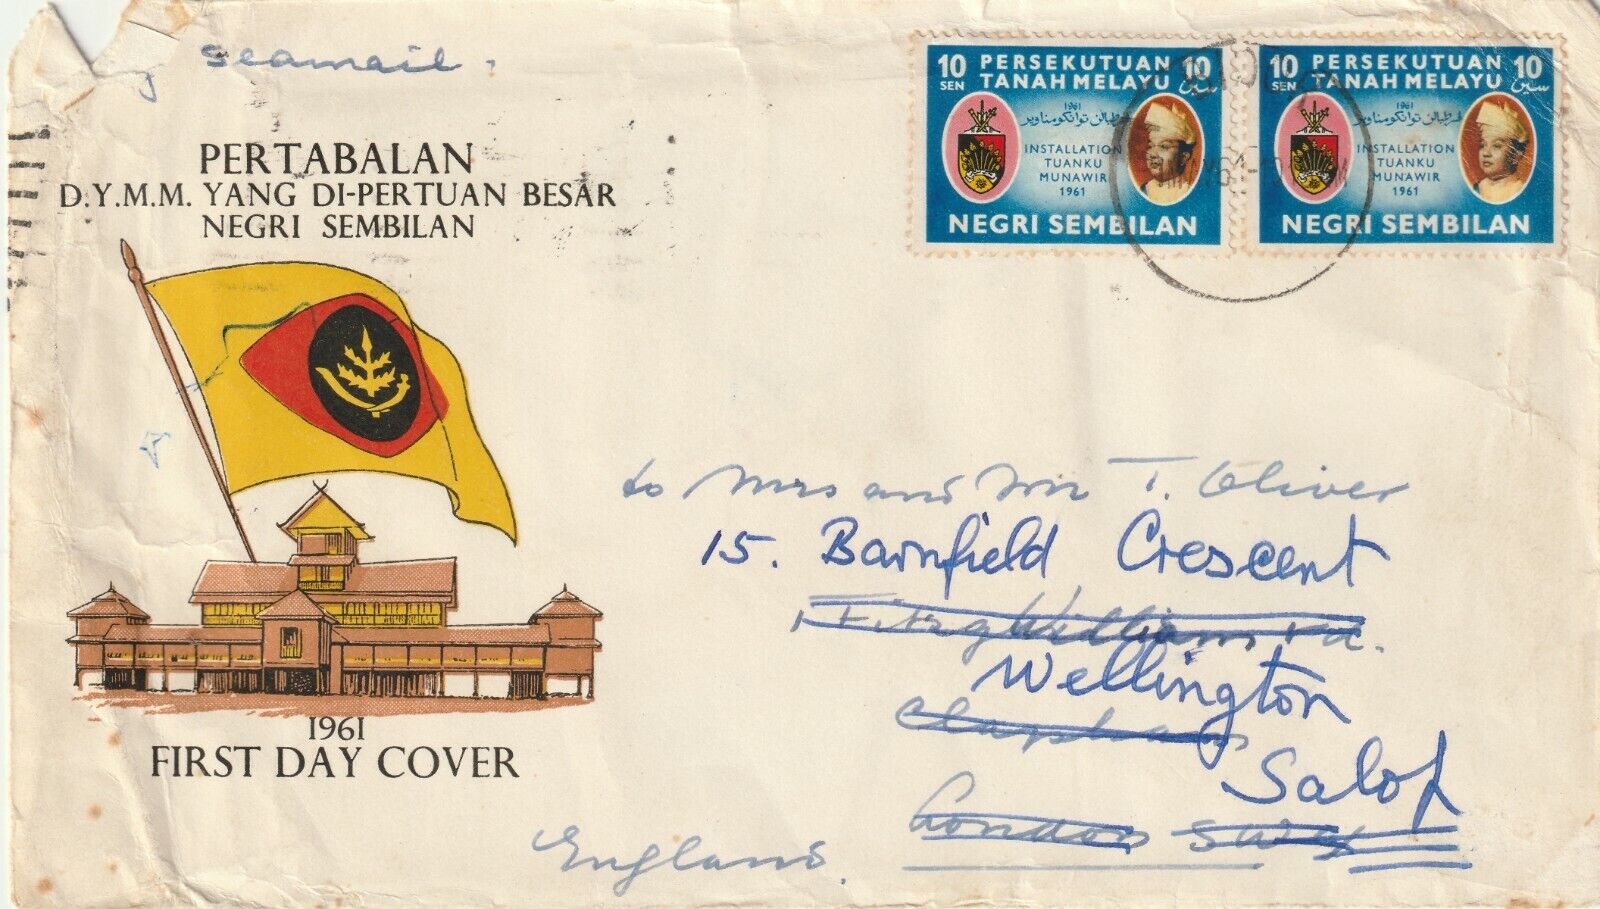 by seamail.
PERTABALAN
D.Y.M.M. YANG DI-PERTUAN BESAR
NEGRI SEMBILAN
1961
FIRST DAY COVER
10 SEN PERSEKUTUAN 10 سين
TANAH MELAYU
1961
INSTALLATION
TUANKU
MUNAWIR
1961
NEGRI SEMBILAN
10 SEN PERSEKUTUAN 10 سين
TANAH MELAYU
1961
INSTALLATION
TUANKU
MUNAWIR
1961
NEGRI SEMBILAN
to Mrs and Mr T. Oliver
15. Barnfield Crescent
Fitzwilliam Rd.
Wellington
Clapham
Salop
London SW4
England.